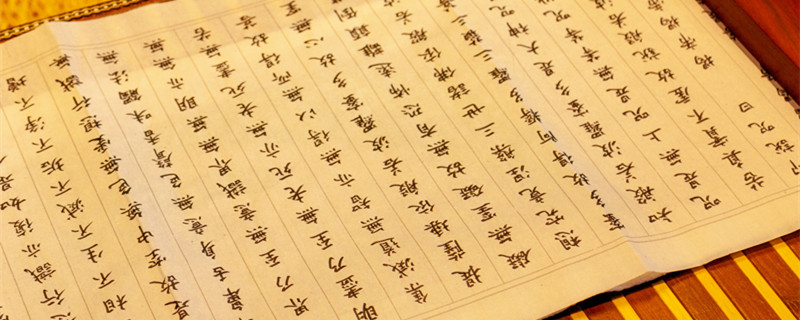 行識亦復如是
相不生不滅不垢不淨不增
是故空中無色無受想行識無
鼻舌身意無色聲香味觸法無
界乃至無意識界無無明亦無無
明盡乃至無老死亦無老死盡無
集滅道無智亦無得以無所得故菩
提薩埵依般若波羅蜜多故心無
礙無罣礙故無有恐怖遠離顛倒
想究竟涅槃三世諸佛依般若
蜜多故得阿耨多羅三藐三
知般若波羅蜜多是大神咒
咒是無上咒是無等等咒
苦真實不虛故說般若
說咒曰 揭帝揭帝